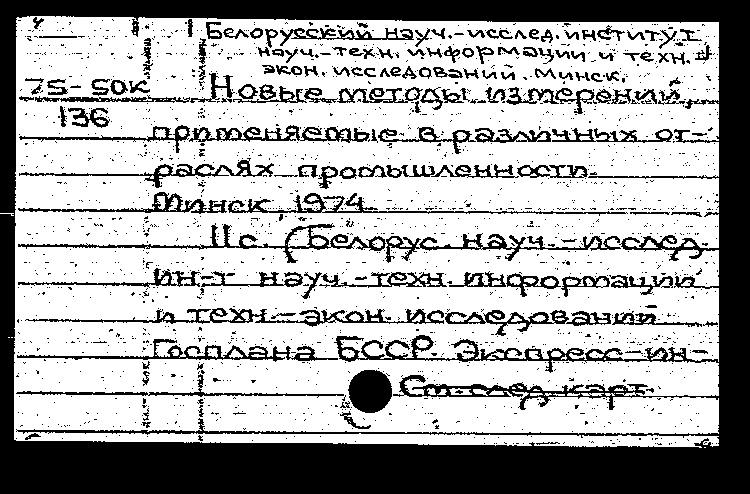 Белорусский науч.-исслед. институт
науч.-техн. информации и техн.-
экон. исследований. Минск.
75-50к
136
Новые методы измерений,
применяемые в различных от-
раслях промышленности.
Минск, 1974.
11с. (Белорус. науч.-исслед.
ин-т науч.-техн. информации
и техн.-экон. исследований
Госплана БССР. Экспресс-ин-
См. след. карт.